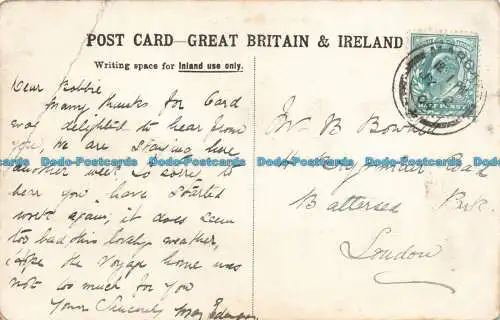 POST CARD—GREAT BRITAIN & IRELAND
Writing space for Inland use only.
HALFPENNY
Dear Bobbie
Many thanks for Card
was delighted to hear from
you, We are staying here
another week. So sorry to
hear you have started
work again, it does seem
too bad, this lovely weather,
hope the voyage home was
not too much for you
Yours Sincerely May
Mr B
Road
Battersea Prk.
London
Dodo-Postcards Dodo-Postcards Dodo-Postcards Dodo-Postcards